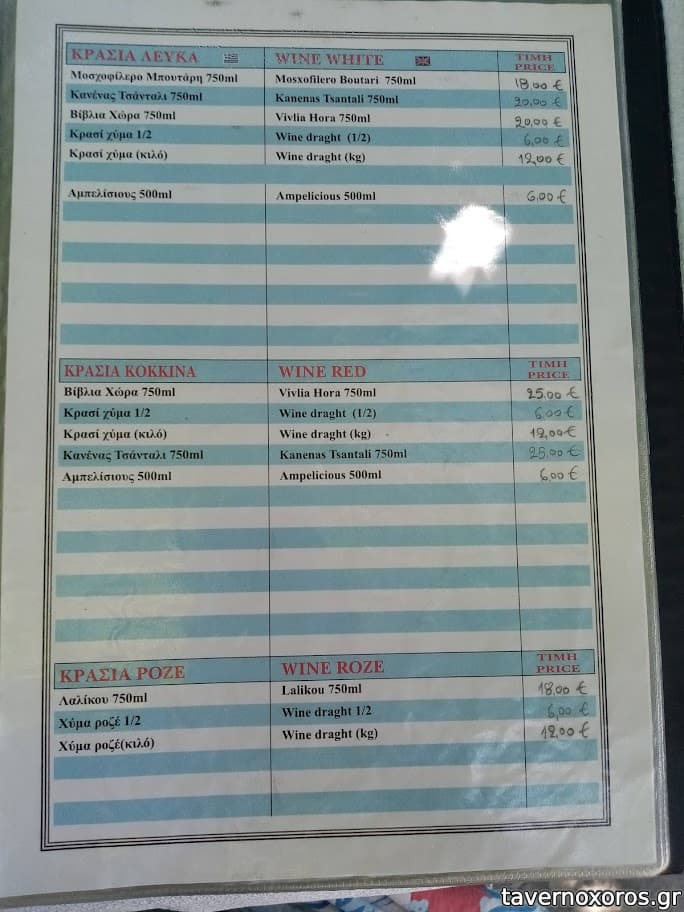 ΚΡΑΣΙΑ ΛΕΥΚΑ WINE WHITE ΤΙΜΗ PRICE
Μοσχοφίλερο Μπουτάρη 750ml Mosxofilero Boutari 750ml 18,00 €
Κανένας Τσάνταλι 750ml Kanenas Tsantali 750ml 20,00 €
Βίβλια Χώρα 750ml Vivlia Hora 750ml 20,00 €
Κρασί χύμα 1/2 Wine draght (1/2) 6,00 €
Κρασί χύμα (κιλό) Wine draght (kg) 12,00 €
Αμπελίσιους 500ml Ampelicious 500ml 6,00 €
ΚΡΑΣΙΑ ΚΟΚΚΙΝΑ WINE RED ΤΙΜΗ PRICE
Βίβλια Χώρα 750ml Vivlia Hora 750ml 25,00 €
Κρασί χύμα 1/2 Wine draght (1/2) 6,00 €
Κρασί χύμα (κιλό) Wine draght (kg) 12,00 €
Κανένας Τσάνταλι 750ml Kanenas Tsantali 750ml 25,00 €
Αμπελίσιους 500ml Ampelicious 500ml 6,00 €
ΚΡΑΣΙΑ ΡΟΖΕ WINE ROZE ΤΙΜΗ PRICE
Λαλίκου 750ml Lalikou 750ml 18,00 €
Χύμα ροζέ 1/2 Wine draght 1/2 6,00 €
Χύμα ροζέ(κιλό) Wine draght (kg) 12,00 €
tavernoxoros.gr